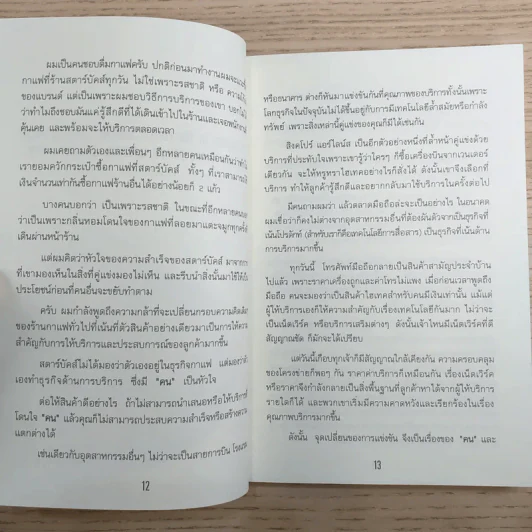 ผมเป็นคนชอบดื่มกาแฟครับ ปกติก่อนมาทำงานผมจะแวะซื้อ
กาแฟที่ร้านสตาร์บัคส์ทุกวัน ไม่ใช่เพราะรสชาติ หรือ ความ
ของแบรนด์ แต่เป็นเพราะผมชอบวิธีการบริการของเขา บอกไม่
ว่าทำไมถึงชอบมันแค่รู้สึกดีที่ได้เดินเข้าไปในร้านและเจอพนักงาน
คุ้นเคย และพร้อมจะให้บริการตลอดเวลา
ผมเคยถามตัวเองและเพื่อนๆ อีกหลายคนเหมือนกันว่าทำไม
เรายอมควักกระเป๋าซื้อกาแฟที่สตาร์บัคส์ ทั้งๆ ที่เราสามารถ
เงินจำนวนเท่ากันซื้อกาแฟร้านอื่นได้อย่างน้อยก็ 2 แก้ว
บางคนบอกว่า เป็นเพราะรสชาติ ในขณะที่อีกหลายคน
ว่าเป็นเพราะกลิ่นหอมโดนใจของกาแฟที่ลอยมาแตะจมูกทุกครั้ง
เดินผ่านหน้าร้าน
แต่ผมคิดว่าหัวใจของความสำเร็จของสตาร์บัคส์ มาจากการ
ที่เขามองเห็นในสิ่งที่คู่แข่งมองไม่เห็น และรีบนำสิ่งนั้นมาใช้ให้เป็น
ประโยชน์ก่อนที่คนอื่นจะขยับทำตาม
ครับ ผมกำลังพูดถึงความกล้าที่จะเปลี่ยนกรอบความคิดเดิมๆ
ของร้านกาแฟทั่วไปที่เน้นที่ตัวสินค้าอย่างเดียวมาเป็นการให้ความ
สำคัญกับการให้บริการและประสบการณ์ของลูกค้ามากขึ้น
สตาร์บัคส์ไม่ได้มองว่าตัวเองอยู่ในธุรกิจกาแฟ แต่มองว่าตัว
เองทำธุรกิจด้านการบริการ ซึ่งมี "คน" เป็นหัวใจ
ต่อให้สินค้าดีอย่างไร ถ้าไม่สามารถนำเสนอหรือให้บริการที่
โดนใจ "คน" แล้วคุณก็ไม่สามารถประสบความสำเร็จหรือสร้างความ
แตกต่างได้
เช่นเดียวกับอุตสาหกรรมอื่นๆ ไม่ว่าจะเป็นสายการบิน โรงแรม
12
หรือธนาคาร ต่างก็หันมาแข่งขันกันที่คุณภาพของบริการทั้งนั้นเพราะ
โลกธุรกิจในปัจจุบันไม่ได้ขึ้นอยู่กับการมีเทคโนโลยีล้ำสมัยหรือกำลัง
ทรัพย์ เพราะสิ่งเหล่านี้คู่แข่งของคุณก็มีได้เช่นกัน
สิงคโปร์ แอร์ไลน์ส เป็นอีกตัวอย่างหนึ่งที่ล้ำหน้าคู่แข่งด้วย
บริการที่ประทับใจเพราะเขารู้ว่าใครๆ ก็ซื้อเครื่องบินจากเวนเดอร์
เดียวกัน จะให้หรูหราไฮเทคอย่างไรก็สั่งได้ ดังนั้นเขาจึงเลือกที่
บริการ ทำให้ลูกค้ารู้สึกดีและอยากกลับมาใช้บริการในครั้งต่อไป
มีคนถามผมว่า แล้วตลาดมือถือล่ะจะเป็นอย่างไร ในอนาคต
ผมเชื่อว่าก็คงไม่ต่างจากอุตสาหกรรมอื่นที่ต้องผันตัวจากเป็นธุรกิจที่
เน้นโปรดักท์ (สำหรับเราก็คือเทคโนโลยีการสื่อสาร) เป็นธุรกิจที่เน้นด้าน
การบริการมากขึ้น
ทุกวันนี้ โทรศัพท์มือถือกลายเป็นสินค้าสามัญประจำบ้าน
ไปแล้ว เพราะราคาเครื่องถูกและค่าโทรไม่แพง เมื่อก่อนเวลาพูดถึง
มือถือ คนจะมองว่าเป็นสินค้าไฮเทคสำหรับคนมีเงินเท่านั้น แม้แต่
ผู้ให้บริการเองก็ให้ความสำคัญกับเรื่องเทคโนโลยีกันมาก ไม่ว่าจะ
เป็นเน็ตเวิร์ค หรือบริการเสริมต่างๆ ดังนั้นเจ้าไหนมีเน็ตเวิร์คที่ดี
สัญญาณชัด ก็มักจะได้เปรียบ
แต่วันนี้เกือบทุกเจ้าก็มีสัญญาณใกล้เคียงกัน ความครอบคลุม
ของโครงข่ายก็พอๆ กัน ราคาค่าบริการก็เหมือนกัน เรื่องเน็ตเวิร์ค
หรือราคาจึงกำลังกลายเป็นสิ่งพื้นฐานที่ลูกค้าหาได้จากผู้ให้บริการ
รายใดก็ได้ และพวกเขาเริ่มมีความคาดหวังและเรียกร้องในเรื่อง
คุณภาพบริการมากขึ้น
ดังนั้น จุดเปลี่ยนของการแข่งขัน จึงเป็นเรื่องของ "คน" และ
13